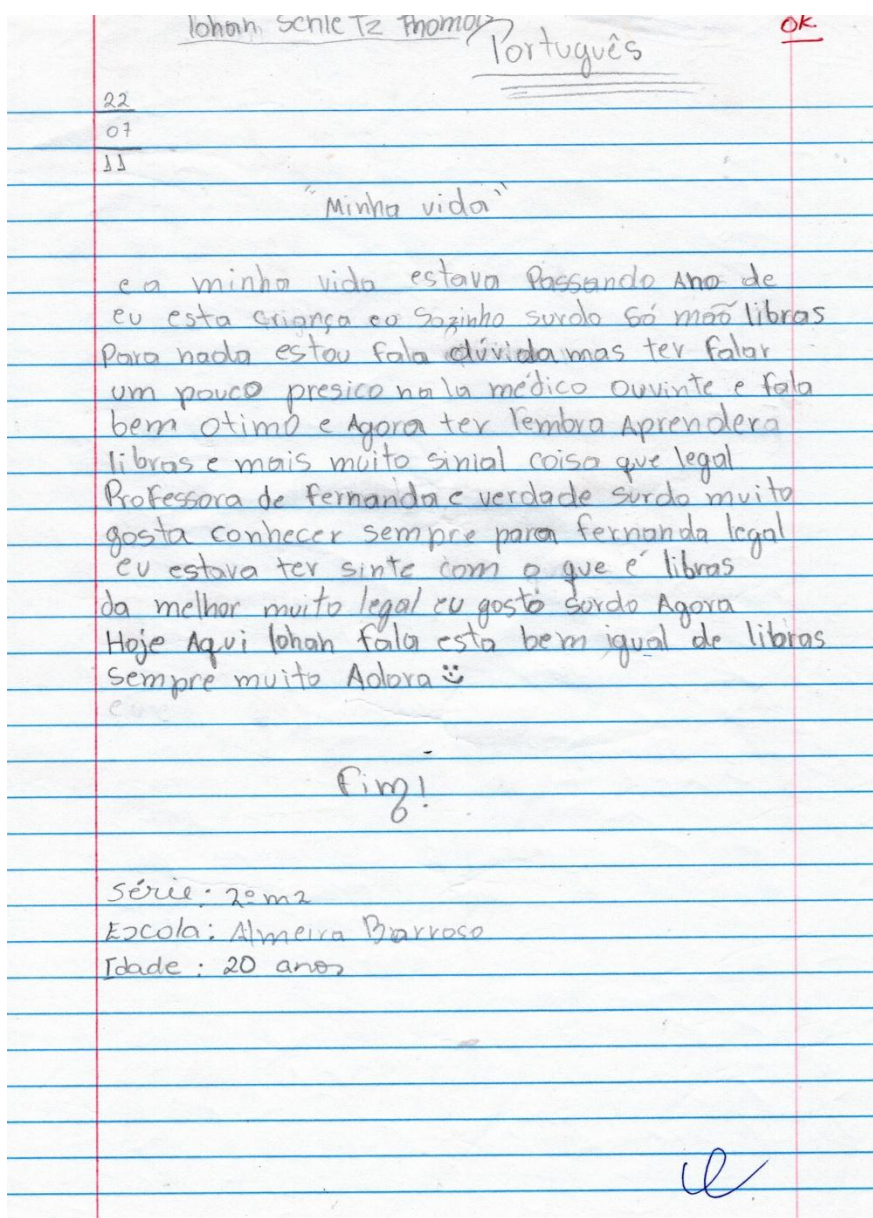 Iohan Schletz Thomaz
OK
Português
22
07
11
"Minha vida"
e a minha vida estava Passando Ano de
eu esta criança eo Sozinho surdo Só mão libras
Para nada estou fala dúvida mas ter falar
um pouco presico na la médico ouvinte e fala
bem otimo e Agora ter lembra Aprendera
libras e mais muito sinial coisa que legal
Professora de fernanda e verdade surdo muito
gosta conhecer sempre para fernanda legal
eu estava ter sinte com o que é libras
da melhor muito legal eu gosto surdo Agora
Hoje Aqui Iohan fala esta bem igual de libras
Sempre muito Adora
Fim!
Série: 2º m2
Escola: Almeira Barroso
Idade: 20 anos